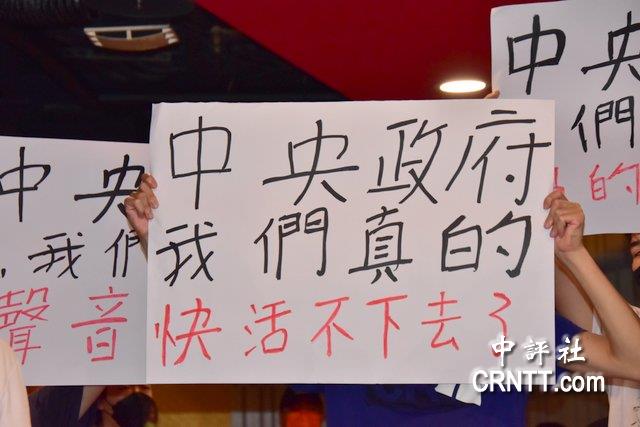 中央政府
我們真的
快活不下去了
中央
,我們
聲音
中央
們
的
中評社
CRNTT.com